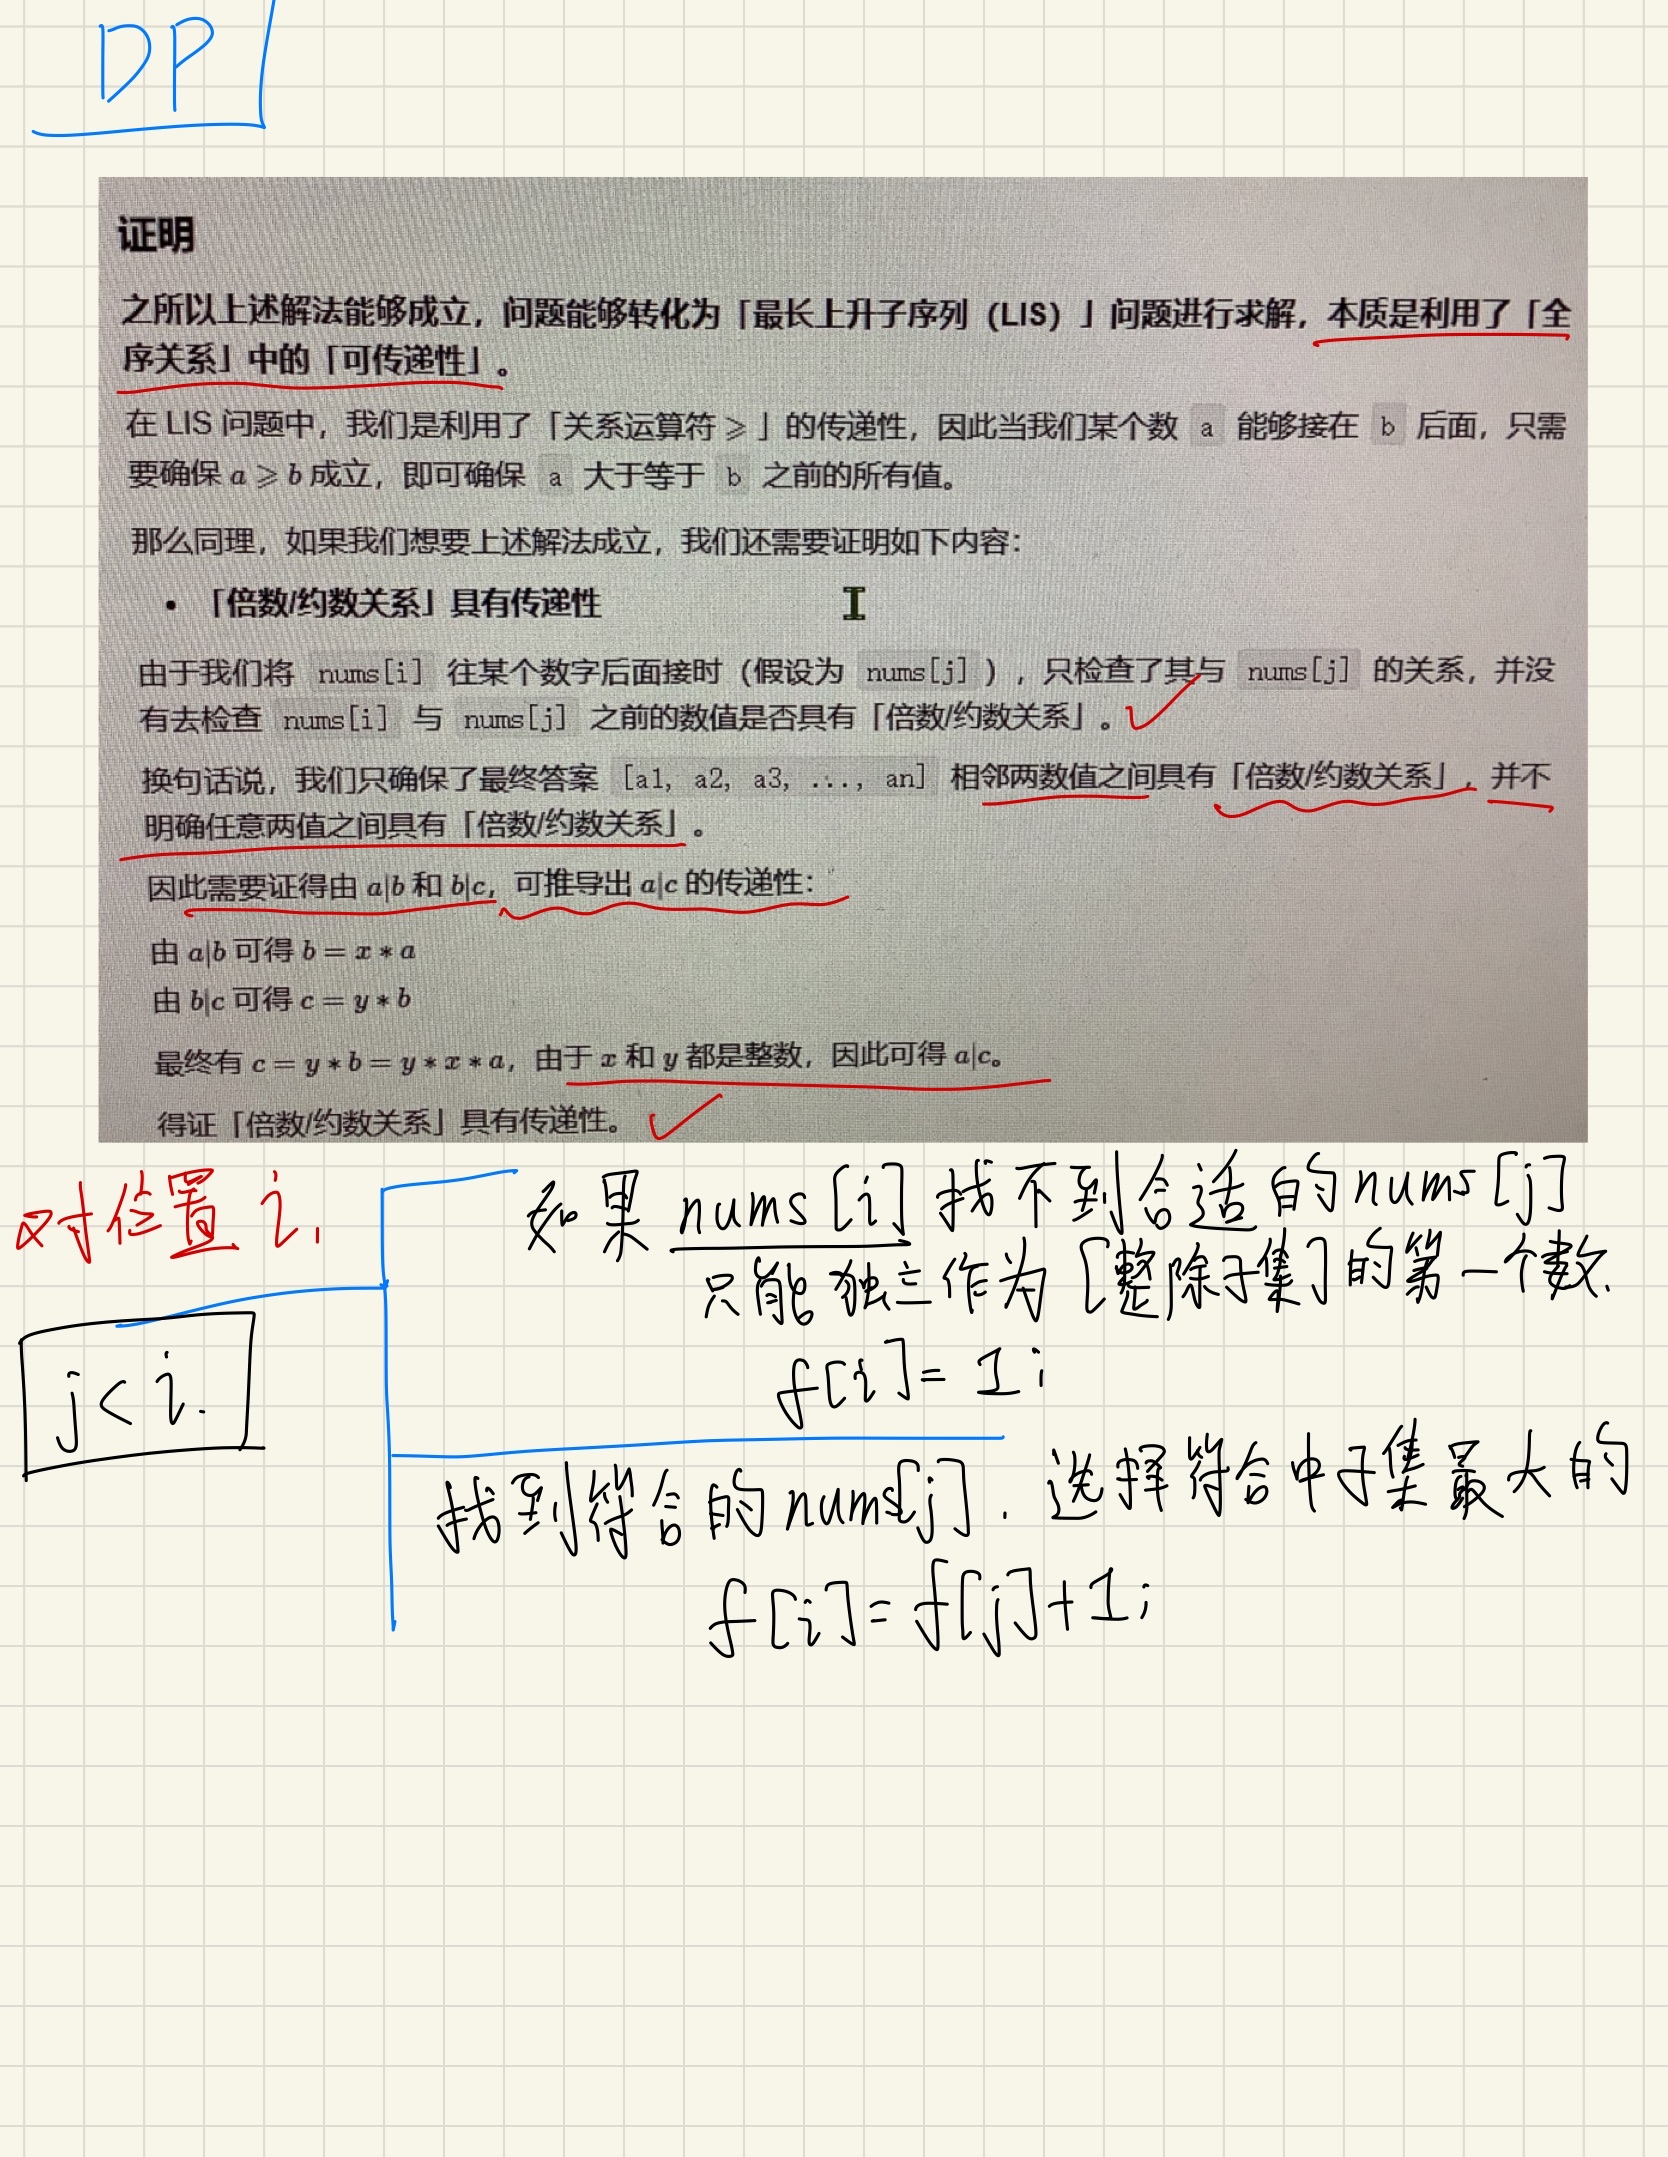 DP
证明
之所以上述解法能够成立，问题能够转化为「最长上升子序列（LIS）」问题进行求解，本质是利用了「全
序关系」中的「可传递性」。
在 LIS 问题中，我们是利用了「关系运算符 ⩾ 」的传递性，因此当我们某个数 a 能够接在 b 后面，只需
要确保 a ⩾ b 成立，即可确保 a 大于等于 b 之前的所有值。
那么同理，如果我们想要上述解法成立，我们还需要证明如下内容：
• 「倍数/约数关系」具有传递性
由于我们将 nums[i] 往某个数字后面接时（假设为 nums[j]），只检查了其与 nums[j] 的关系，并没
有去检查 nums[i] 与 nums[j] 之前的数值是否具有「倍数/约数关系」。
换句话说，我们只确保了最终答案 [a1, a2, a3, ..., an] 相邻两数值之间具有「倍数/约数关系」，并不
明确任意两值之间具有「倍数/约数关系」。
因此需要证得由 a|b 和 b|c，可推导出 a|c 的传递性：
由 a|b 可得 b = x * a
由 b|c 可得 c = y * b
最终有 c = y * b = y * x * a，由于 x 和 y 都是整数，因此可得 a|c。
得证「倍数/约数关系」具有传递性。
对位置 i,
如果 nums[i] 找不到合适的 nums[j]
只能独立作为[整除子集]的第一个数.
f[i] = 1;
j < i.
找到符合的 nums[j]. 选择符合中子集最大的
f[i] = f[j]+1;